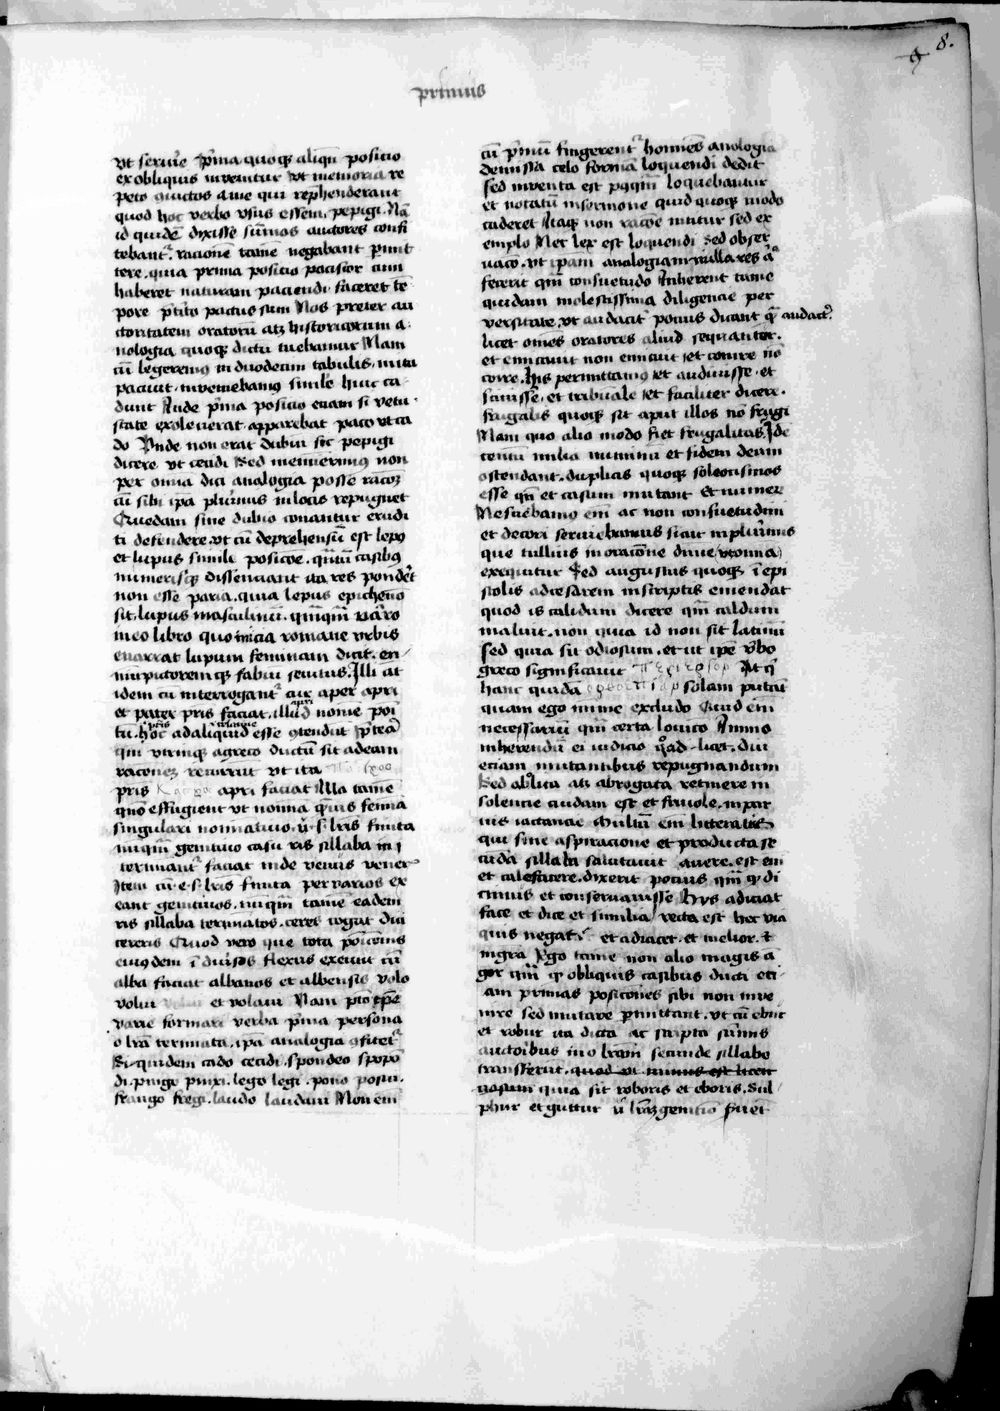 8.
9
primus
vt seruire Prima quoque aliqn positio
ex obliquis inuenitur vt memoria re
peto conuictos a me qui reprehenderant
quod hoc verbo vsus essem, pepigi. Nam
id quidē dixisse sūmos auctores confi
tebantr. racionē tamē negabant permit
tere, quia prima positio paciscor cum
haberet naturam paciendi, faceret tē
pore pretito pactus sum Nos preter au
ctoritatem oratorū atque historicorum a-
nologia quoque dictū tuebamur Nam
cū legeremus in duodecim tabulis, nita
pacunt, inueniebamus simile huic ca-
dunt Inde prima positio etiam si vetu-
state exoleuerat, apparebat paco vt ca
do Vnde non erat dubiū sic pepigi
dicere vt cecidi Sed meminerimus non
per omnia dici analogia posse racōe
cū sibi ipa plurimis in locis repugnet
Quedam sine dubio conantur erudi
ti defendere, vt cū deprehensū est lepus
et lupus simili posicōe, quantū casibus
numerisque dissentiant ita respondēt
non esse paria, quia lepus epichenō
sit, lupus masculinū, quāquā varro
in eo libro quo inicia romane vrbis
enarrat lupum feminam dicit, en-
niū pictoremque fabiū secutus. Illi at
idem cū interrogantr cur aper apri
apri
et pater pris faciat, illud nomē poi
pris
tū, hoc ad aliquid esse ostendūt Preterea
qm vtrumque a greco ductū sit ad eam
racionez recurrūt vt ita
pris apri faciat Illa tamē
quō effugient vt nomina quis femīa
singulari nominatiuo, u s lris finita
nūqm genitiuo casu ris sillaba in
terminantr faciat inde venus vener
Item cū e s lris finita per varios ex
eant genitiuos, nūqm tamē eadem
ris sillaba terminatos, ceres cogat dici
cereris Quod vero que tota posicōnis
eiusdem ī diuisos flexus exeunt cū
alba faciat albanos et albensis volo
volui et volaui Nam preterito tpe
varie formari verba prima persona
o lra terminata, ipa analogia confitetr
Si quidem cado cecidi, spondeo spopo
di, pingo pinxi, lego legi, pono posui,
frango fregi, laudo laudaui Non eni
cū primū fingerentr homines anologia
demissa celo formā loquendi dedit
sed inuenta est postqm loquebantur
et notatū in sermone quid quoque modo
caderet Itaque non racōe nititur sed ex
emplo Nec lex est loquendi sed obser
uacō, vt ipam analogiam nulla res a
fecerit qm consuetudo Inherent tamē
quidam molestissima diligencie per
versitate, vt audacir potius dicant quam audacter
licet omēs oratores aliud sequantur.
et emicauit non emicuit et conire nō
coire, His permittamus et audiuisse et
sciuisse, et tribunale et faciliter dicere.
frugalis quoque sit aput illos nō frugi
Nam quo alio modo fiet frugalitas, Ide
centū milia nummū et fidem deum
ostendant, duplices quoque soleocismos
esse qn et casum mutant et numerum
Nesciebamus em ac non consuetudini
et decori seruiebamus sicut in plurimis
que tullius in oracōne diuine vt omnia
exequitur Sed augustus quoque ī epi
stolis ad cesarem inscriptis emendat
quod is calidum dicere qm caldum
maluit, non quia id non sit latinū
sed quia sit odiosum, et ut ipe verbo
greco significauit At qui
hanc quidā solam putāt
quam ego mīme excludo Quid em
necessariū qm certa locucō Immo
inherendū ei iudico quoad licet, diu
etiam mutantibus repugnandum
Sed abolita atque abrogata retinere in
solencie cuidam est et friuole, in par
uis iactancie Multū em litteratus
qui sine aspiracione et producta se
cūda sillaba salutauit auere, est em
et calefacere, dixerit potius qm quod di
cimus et conseruauisse Hys adiciat
face et dice et similia recta est hec via
quis negat? et adiacet, et melior. et
nigra Ergo tamē non alio magis a
gor qm quod obliquis casibus ducti eti-
am primas posicōnes sibi non inue
nire sed mutare permittant, vt cū ebur
et robur ita dicta ac scripta sūmis
auctoribus in o lram secunde sillabe
transferūt, quod ut
quia sit roboris et eboris, Sul
phur et guttur u lram genitiō seruet